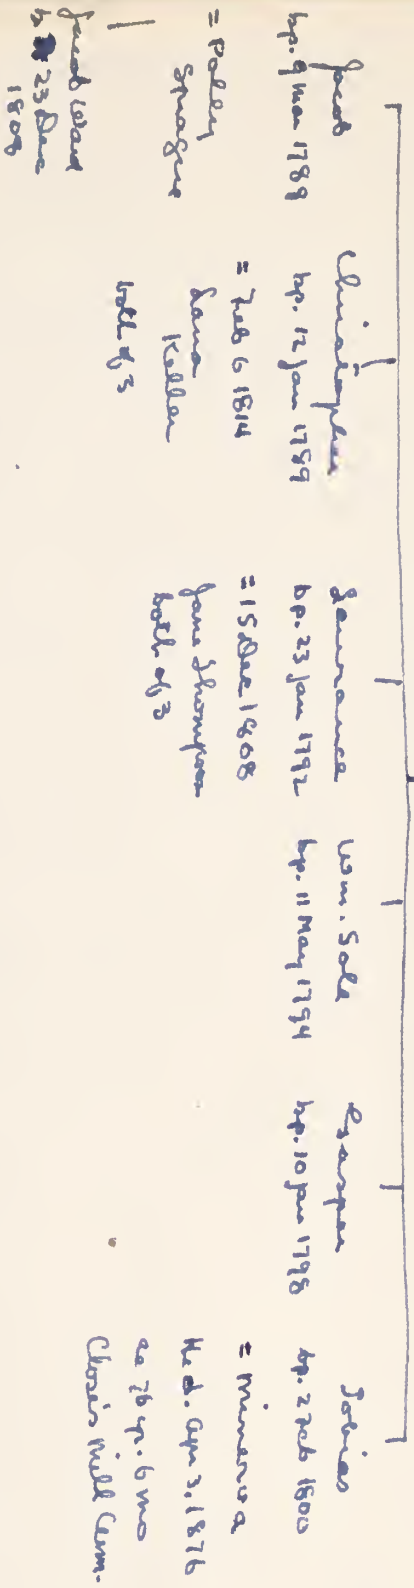 Jacob
bp. 9 Mar 1789
= Polly
Sprague
Jacob Ward
b 23 Dec
1808
Christopher
bp. 12 Jan 1789
= Feb 6 1814
Lana
Keller
both of 3
Laurance
bp. 23 Jan 1792
= 15 Dec 1808
Jane Thompson
both of 3
Wm. Sole
bp. 11 May 1794
Gaspar
bp. 10 Jan 1798
Tobias
bp. 2 Feb 1800
= Minerva
He d. Apr 3, 1876
ae 76 yr. 6 mo
Close's Mill Cem.